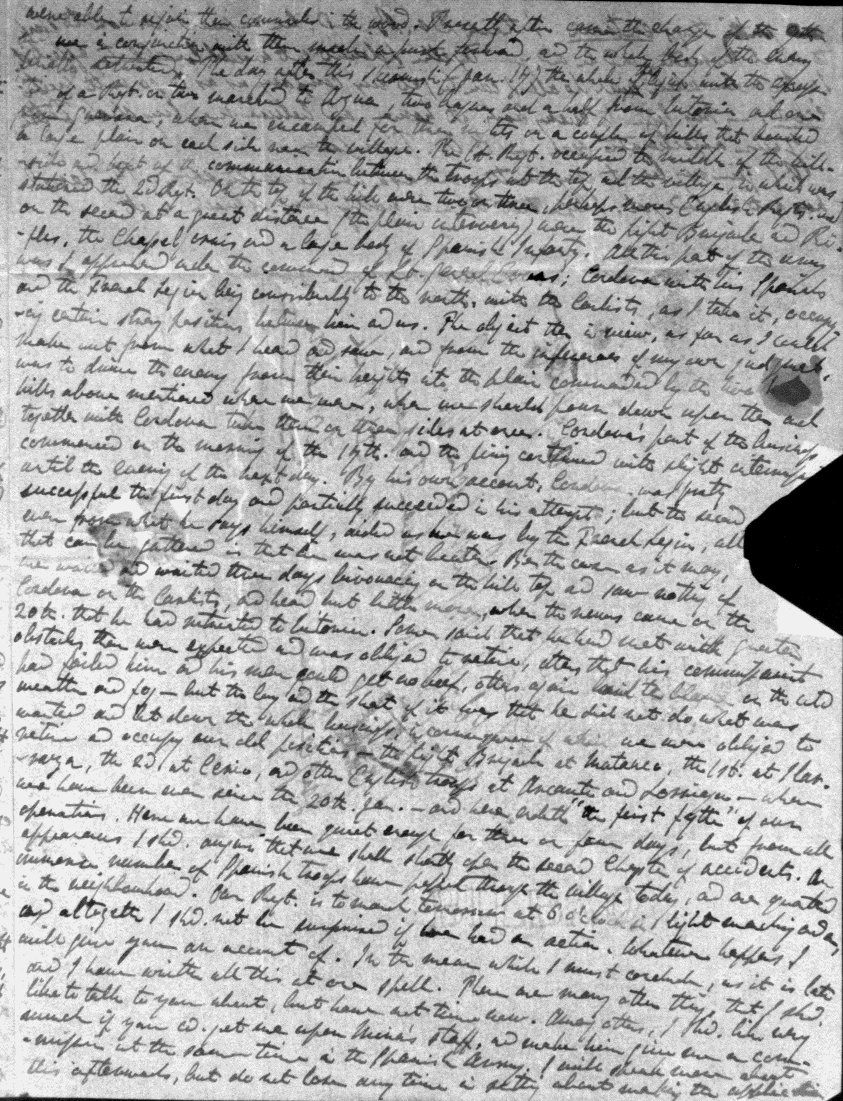 were able to rejoin their comrades in the wood. Presently after came the charge of the
we in conjunction with them made a push forward, and the whole body of the enemy
The day after this skirmish (Jan. 17) the whole Legion with the exception
of a Regt. or two marched to Azua, two leagues and a half from Vitoria and one
from Guevara, where we encamped for three nights on a couple of hills that bounded
a large plain on each side near the village. The 1st. Regt. occupied the middle of the hill-
-side and kept up the communication between the troops at the top and the village, in which was
stationed the 2d Regt. On the top of the hill were two or three, perhaps more English Regts. and
on the second at a great distance (the plain intervening) were the light Brigade and Ri-
-fles, the Chapel and a large body of Spanish Infantry. All this part of the army
was I apprehend under the command of ; Cordova with his Spaniards
and the French Legion being considerably to the north, with the Carlists, as I take it, occupy-
-ing certain strong positions between him and us. The object then in view, as far as I could
make out from what I heard and saw, and from the inferences of my own judgment,
was to drive the enemy from their heights into the plain commanded by the two
hills above mentioned where we were, when we should pour down upon them and
together with Cordova take them on three sides at once. Cordova's part of the business
commenced on the morning of the 17th. and the firing continued with slight intermission
until the evening of the next day. By his own account, Cordova was pretty
successful the first day and partially succeeded in his attempt; but the second
even from what he says himself, aided as he was by the French Legion, all
that can be gathered is that he was not beaten. Be the case as it may,
we waited and waited three days bivouacing on the hill top and saw nothing of
Cordova or the Carlists, and heard but little more, when the news came on the
20th. that he had retreated to Vitoria. Some said that he had met with greater
obstacles than were expected and was obliged to retire, others that his commissariat
had failed him and his men could get no beef, others again laid the blame on the cold
weather and fog — but the long and the short of it was that he did not do what was
wanted and let down the whole business, in consequence of which we were obliged to
retire and occupy our old positions — the light Brigade at Matauco, the 1st. at Ilar-
-raza, the 2d. at Cerio, and other English troops at Arcaute and Lorriaga — where
we have been ever since the 20th. Jan. — and here endeth "the first fytte" of our
operations. Here we have been quiet enough for three or four days, but from all
appearances I shd. augur that we shall shortly open the second Chapter of accidents. An
immense number of Spanish troops have passed through the village today, and are quartered
in the neighbourhood. Our Regt. is to march tomorrow at 6 o'clock in light marching order
and altogether I shd. not be surprised if we had an action. Whatever happens I
will give you an account of. In the mean while I must conclude, as it is late
and I have written all this at one spell. There are many other things that I shd.
like to talk to you about, but have not time now. Among others, I shd. like very
much if you cd. get me upon Mina's staff, and make him give me a com-
-mission at the same time in the Spanish Army. I will speak more about
this afterwards, but do not lose any time in setting about making the application